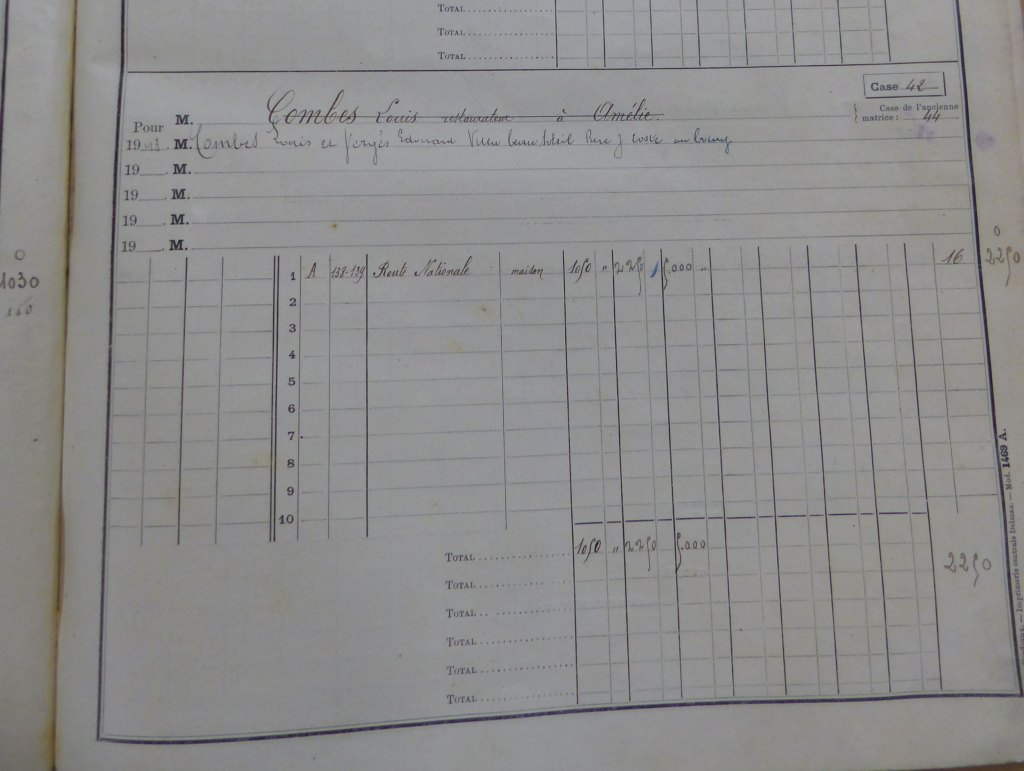 Total
Total
Total
Case 42
Case de l'ancienne
matrice : 44
Pour M. Combes Louis restaurateur à Amélie.
19 43 M. Combes Louis et Vergés Edouard
19 M.
19 M.
19 M.
19 M.
0
1030
160
1 A 138-139 Route Nationale maison 1050 " 2250 5.000 " 16
0
2250
2
3
4
5
6
7
8
9
10
Total 1050 " 2250 5.000
2250
Total
Total
Total
Total
Total
Imprimerie centrale Delmas. — Mod. 1469 A.